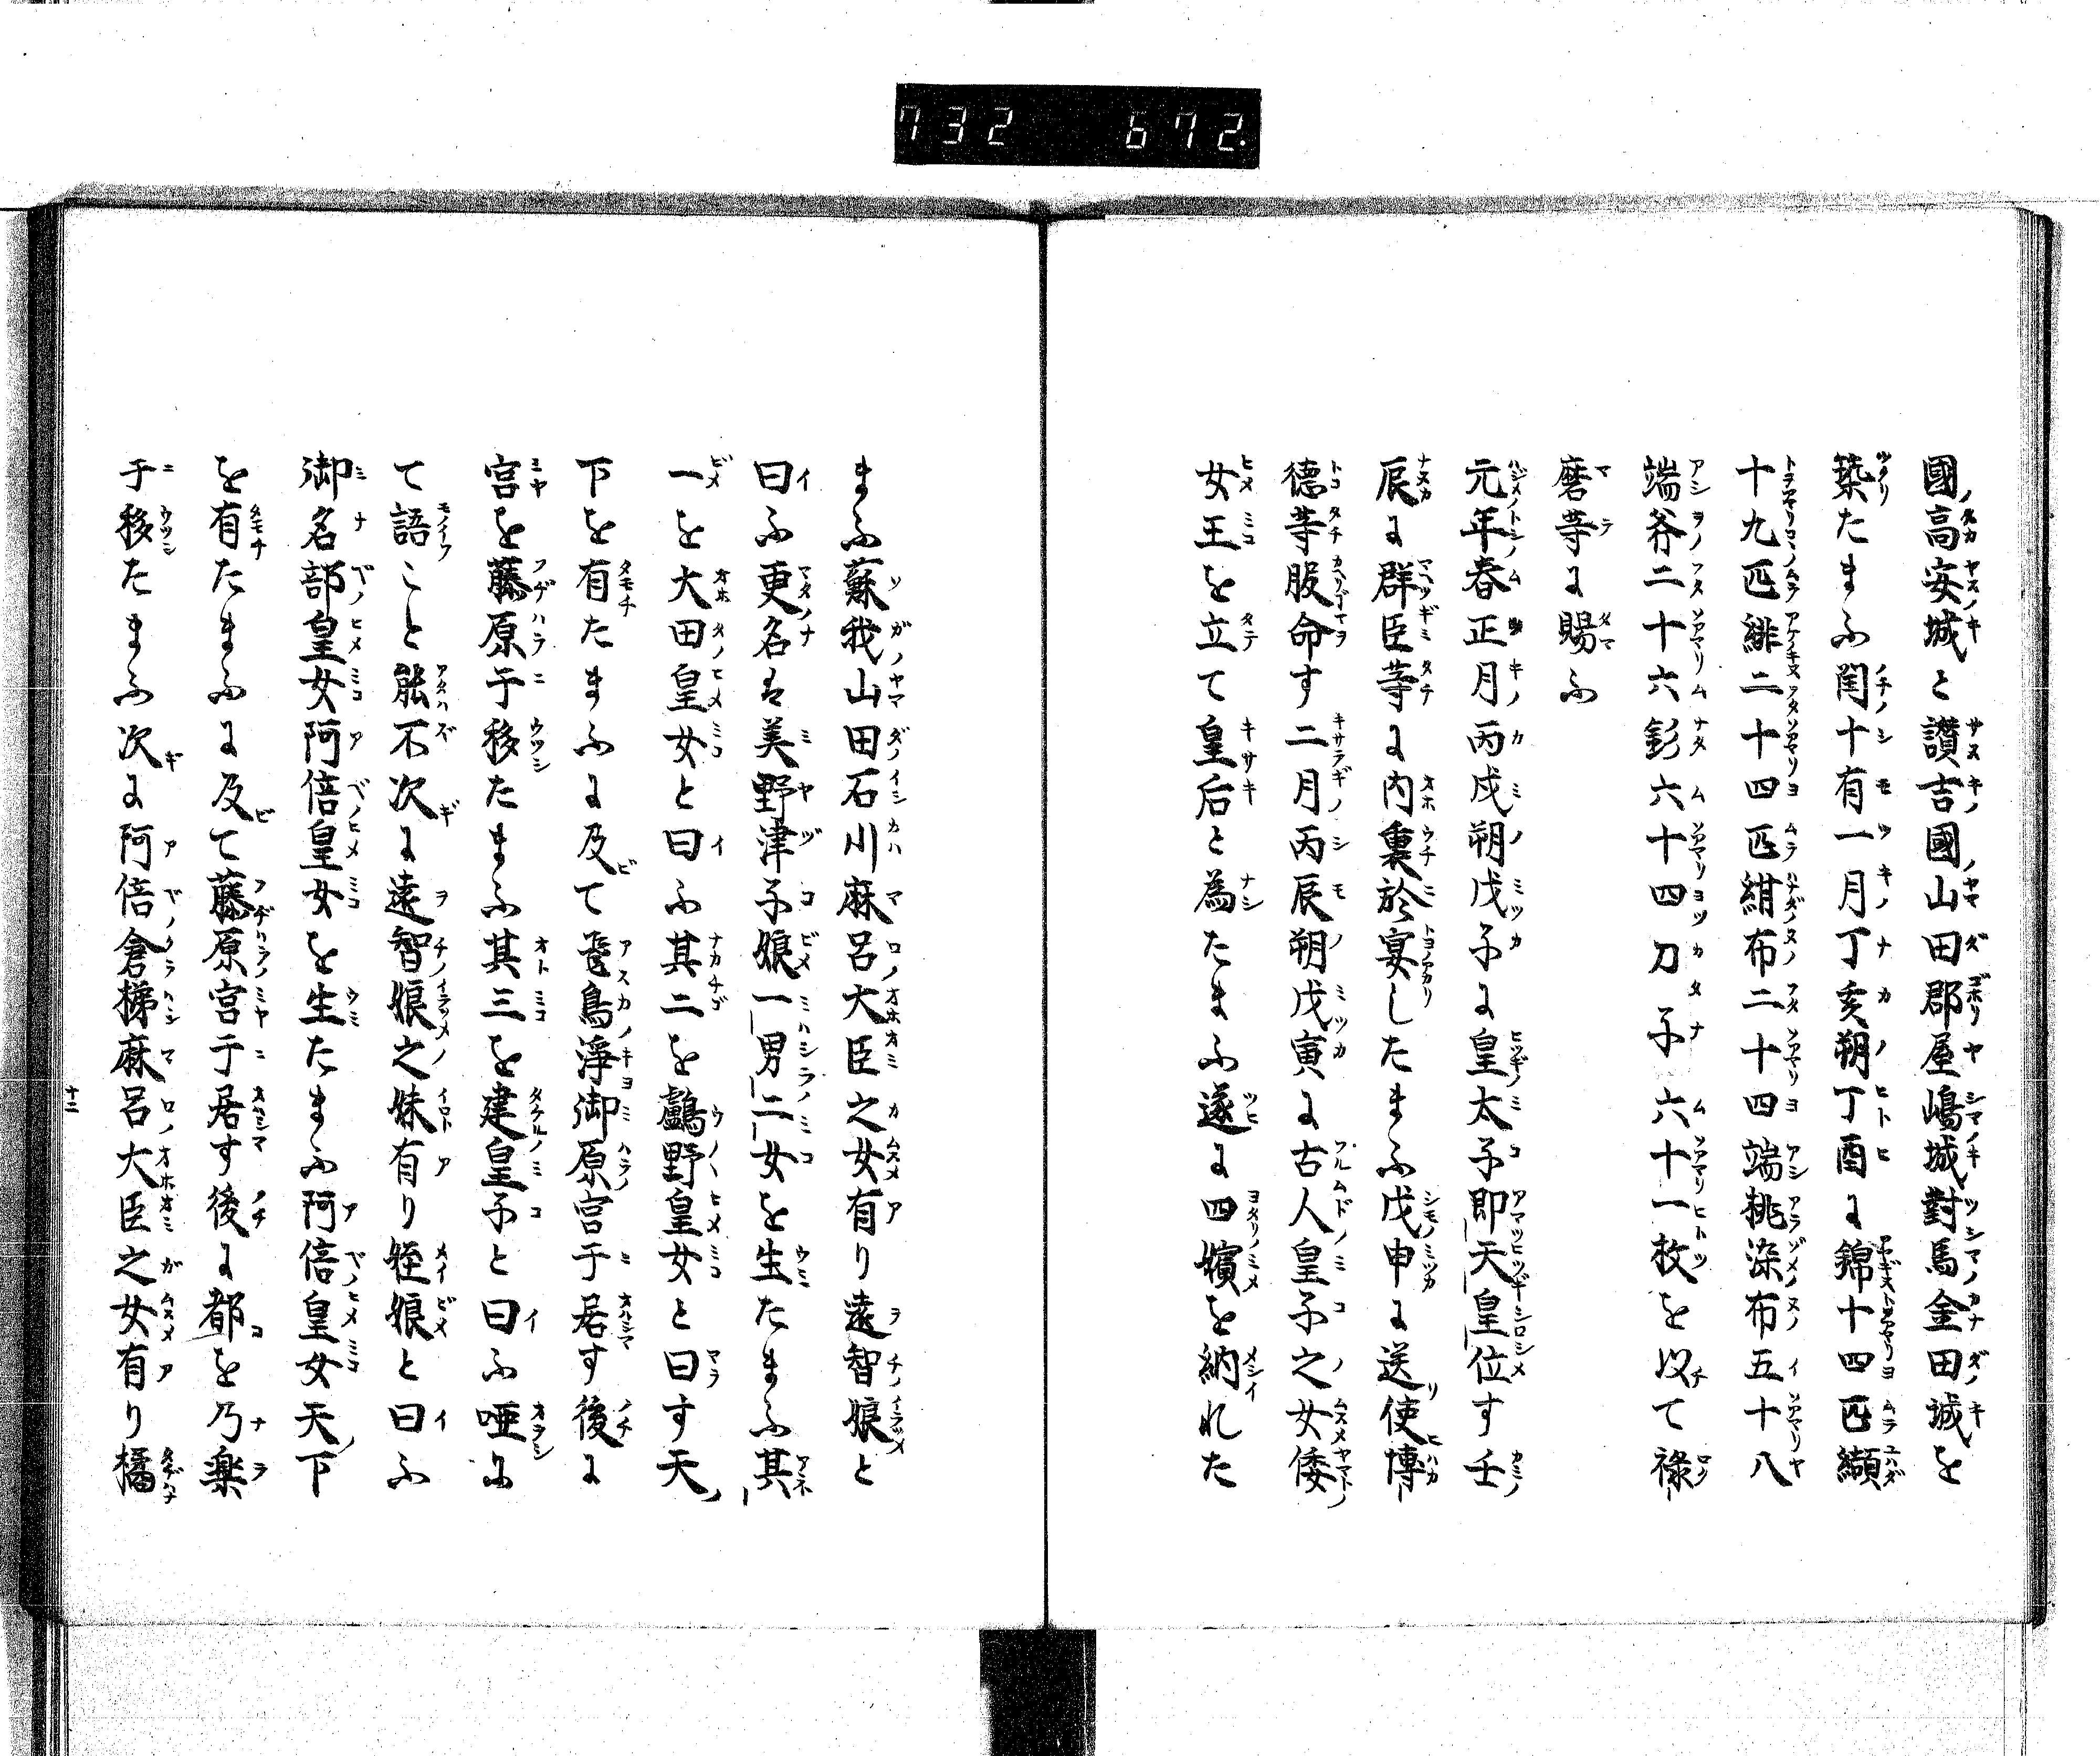 732 672.
國高安城と讃吉國山田郡屋嶋城對馬金田城を
築たまふ閏十有一月丁亥朔丁酉に錦十四匹纈
十九匹緋二十四匹紺布二十四端桃染布五十八
端斧二十六釤六十四刀子六十一枚を以て祿
磨等に賜ふ
元年春正月丙戌朔戊子に皇太子即天皇位す壬
辰に群臣等に内裏於宴したまふ戊申に送使博
德等服命す二月丙辰朔戊寅に古人皇子之女倭
女王を立て皇后と為たまふ遂に四嬪を納れた
まふ蘇我山田石川麻呂大臣之女有り遠智娘と
曰ふ更名は美野津子娘一男二女を生たまふ其
一を大田皇女と曰ふ其二を鸕野皇女と曰す天
下を有たまふに及て飛鳥淨御原宮于居す後に
宮を藤原于移たまふ其三を建皇子と曰ふ唖に
て語こと能不次に遠智娘之妹有り姪娘と曰ふ
御名部皇女阿倍皇女を生たまふ阿倍皇女天下
を有たまふに及て藤原宮于居す後に都を乃樂
于移たまふ次に阿倍倉梯麻呂大臣之女有り橘
十二